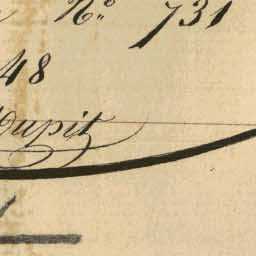 N.º 731
48
Dupit